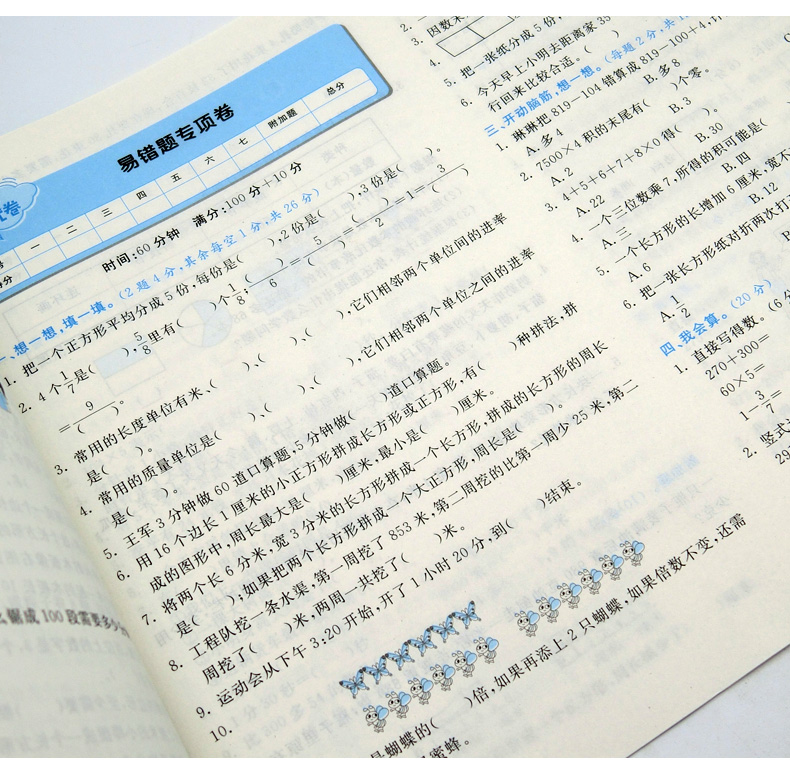 易错题专项卷
一 二 三 四 五 六 七 附加题 总分
时间:60分钟 满分:100分+10分
一、想一想,填一填。(2题4分,其余每空1分,共26分)
1. 把一个正方形平均分成5份,每份是( ),2份是( ),3份是( )。
2. 4个1/7是( ),5/8里有( )个1/8;( )/6=5/( )=( )/2=1=3/( )
=9/( )。
3. 常用的长度单位有米、( )、( )、( ),它们相邻两个单位间的进率
是( )。
4. 常用的质量单位是( )、( )、( ),它们相邻两个单位之间的进率
是( )。
5. 王军3分钟做60道口算题,5分钟做( )道口算题。
6. 用16个边长1厘米的小正方形拼成长方形或正方形,有( )种拼法,拼
成的图形中,周长最大是( )厘米,最小是( )厘米。
7. 将两个长6分米,宽3分米的长方形拼成一个长方形,拼成的长方形的周长
是( );如果把两个长方形拼成一个大正方形,周长是( )。
8. 工程队挖一条水渠,第一周挖了853米,第二周挖的比第一周少25米,第二
周挖了( )米,两周一共挖了( )米。
9. 运动会从下午3:20开始,开了1小时20分,到( )结束。
10.
是蝴蝶的( )倍,如果再添上2只蝴蝶,如果倍数不变,还需
蜜蜂。
锯成100段需要多少
2.
3. 因数末
4.
5. 把一张纸分成5份,
6. 今天早上小明去距离家35
行回来比较合适。( )
三、开动脑筋,想一想。(每题2分,共1
1. 琳琳把819-104错算成819-100+4,
A. 多4 B. 多8
2. 7500×4积的末尾有( )个零。
A. 2 B. 3
3. 4+5+6+7+8×0得( )。
A. 22 B. 30
4. 一个三位数乘7,所得的积可能是(
A. 三 B. 四
5. 一个长方形的长增加6厘米,宽不
A. 6 B. 12
6. 把一张长方形纸对折两次打
A. 1/2 B
四、我会算。(20分)
1. 直接写得数。(6分
270+300=
60×5=
1-3/7=
2. 竖式